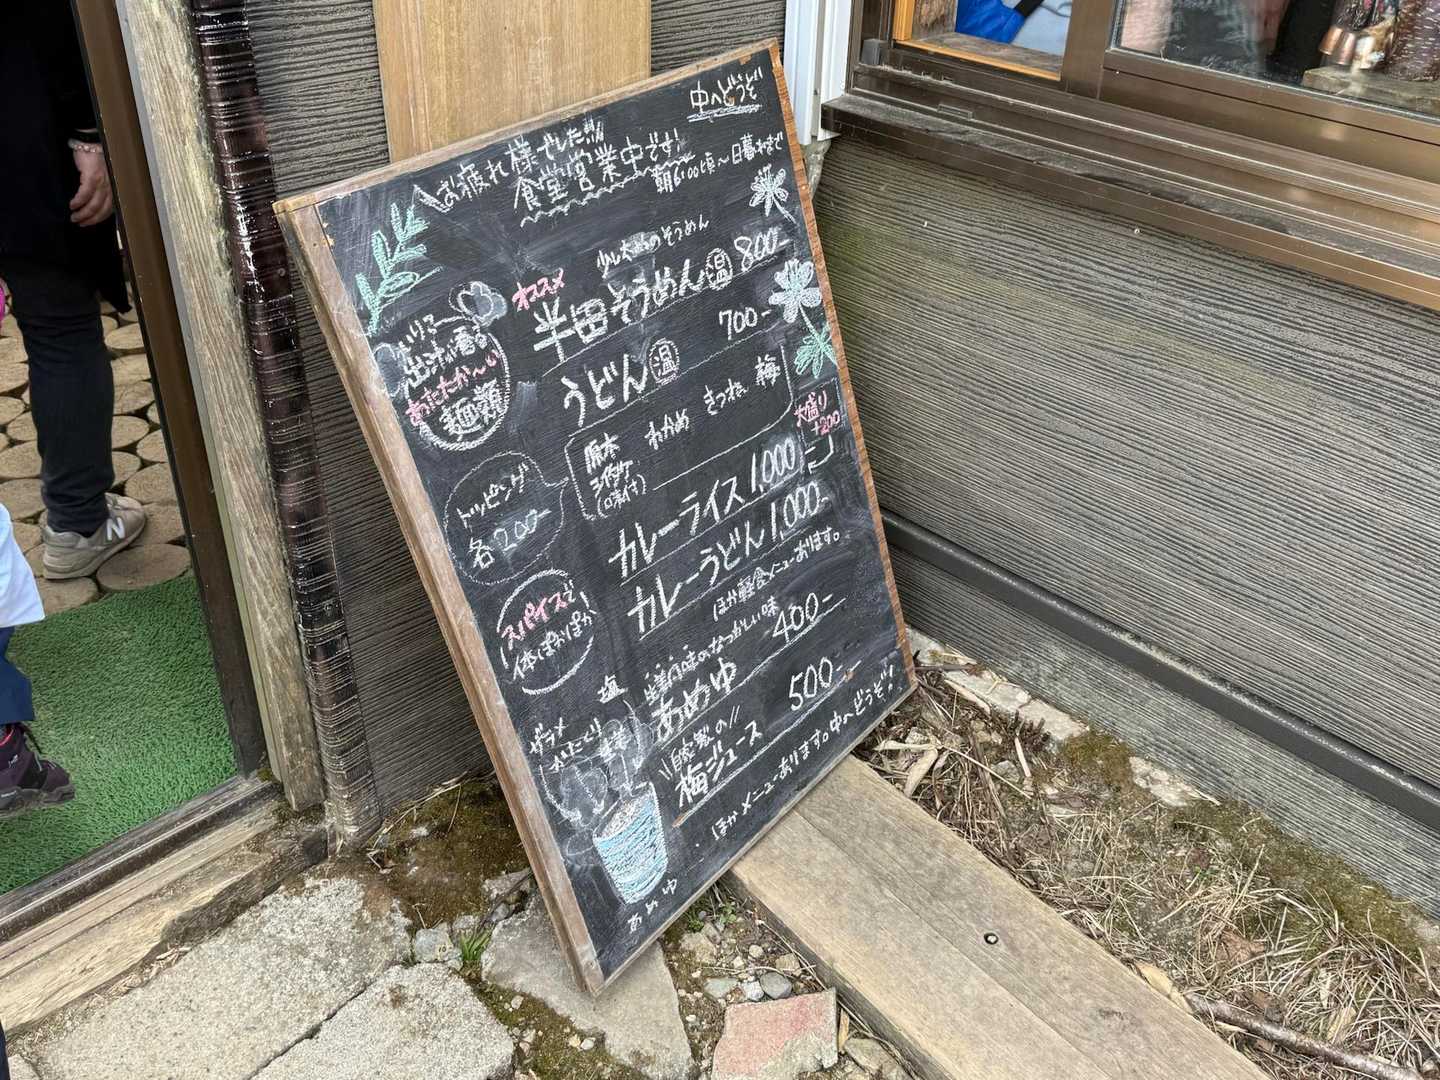 中へどうぞ
お疲れ様でした!!!
食堂営業中です!
朝6:00頃〜日暮れまで
少し太めのそうめん
オススメ
半田そうめん 温 800-
うどん 温 700-
いりこ
出汁が香る
あたたか〜い
麺類
トッピング
各200-
原木
シイタケ
(味付)
わかめ
きつねあげ
梅
大盛り
+200
カレーライス 1,000-
カレーうどん 1,000-
スパイスで
体ぽかぽか!
ほか軽食メニューあります。
生姜風味のなつかしい味
あめゆ 400-
自家製の
梅ジュース 500-
塩
ザラメ
かたくり
生姜
あめゆ
ほかメニューあります。中へどうぞ!
N